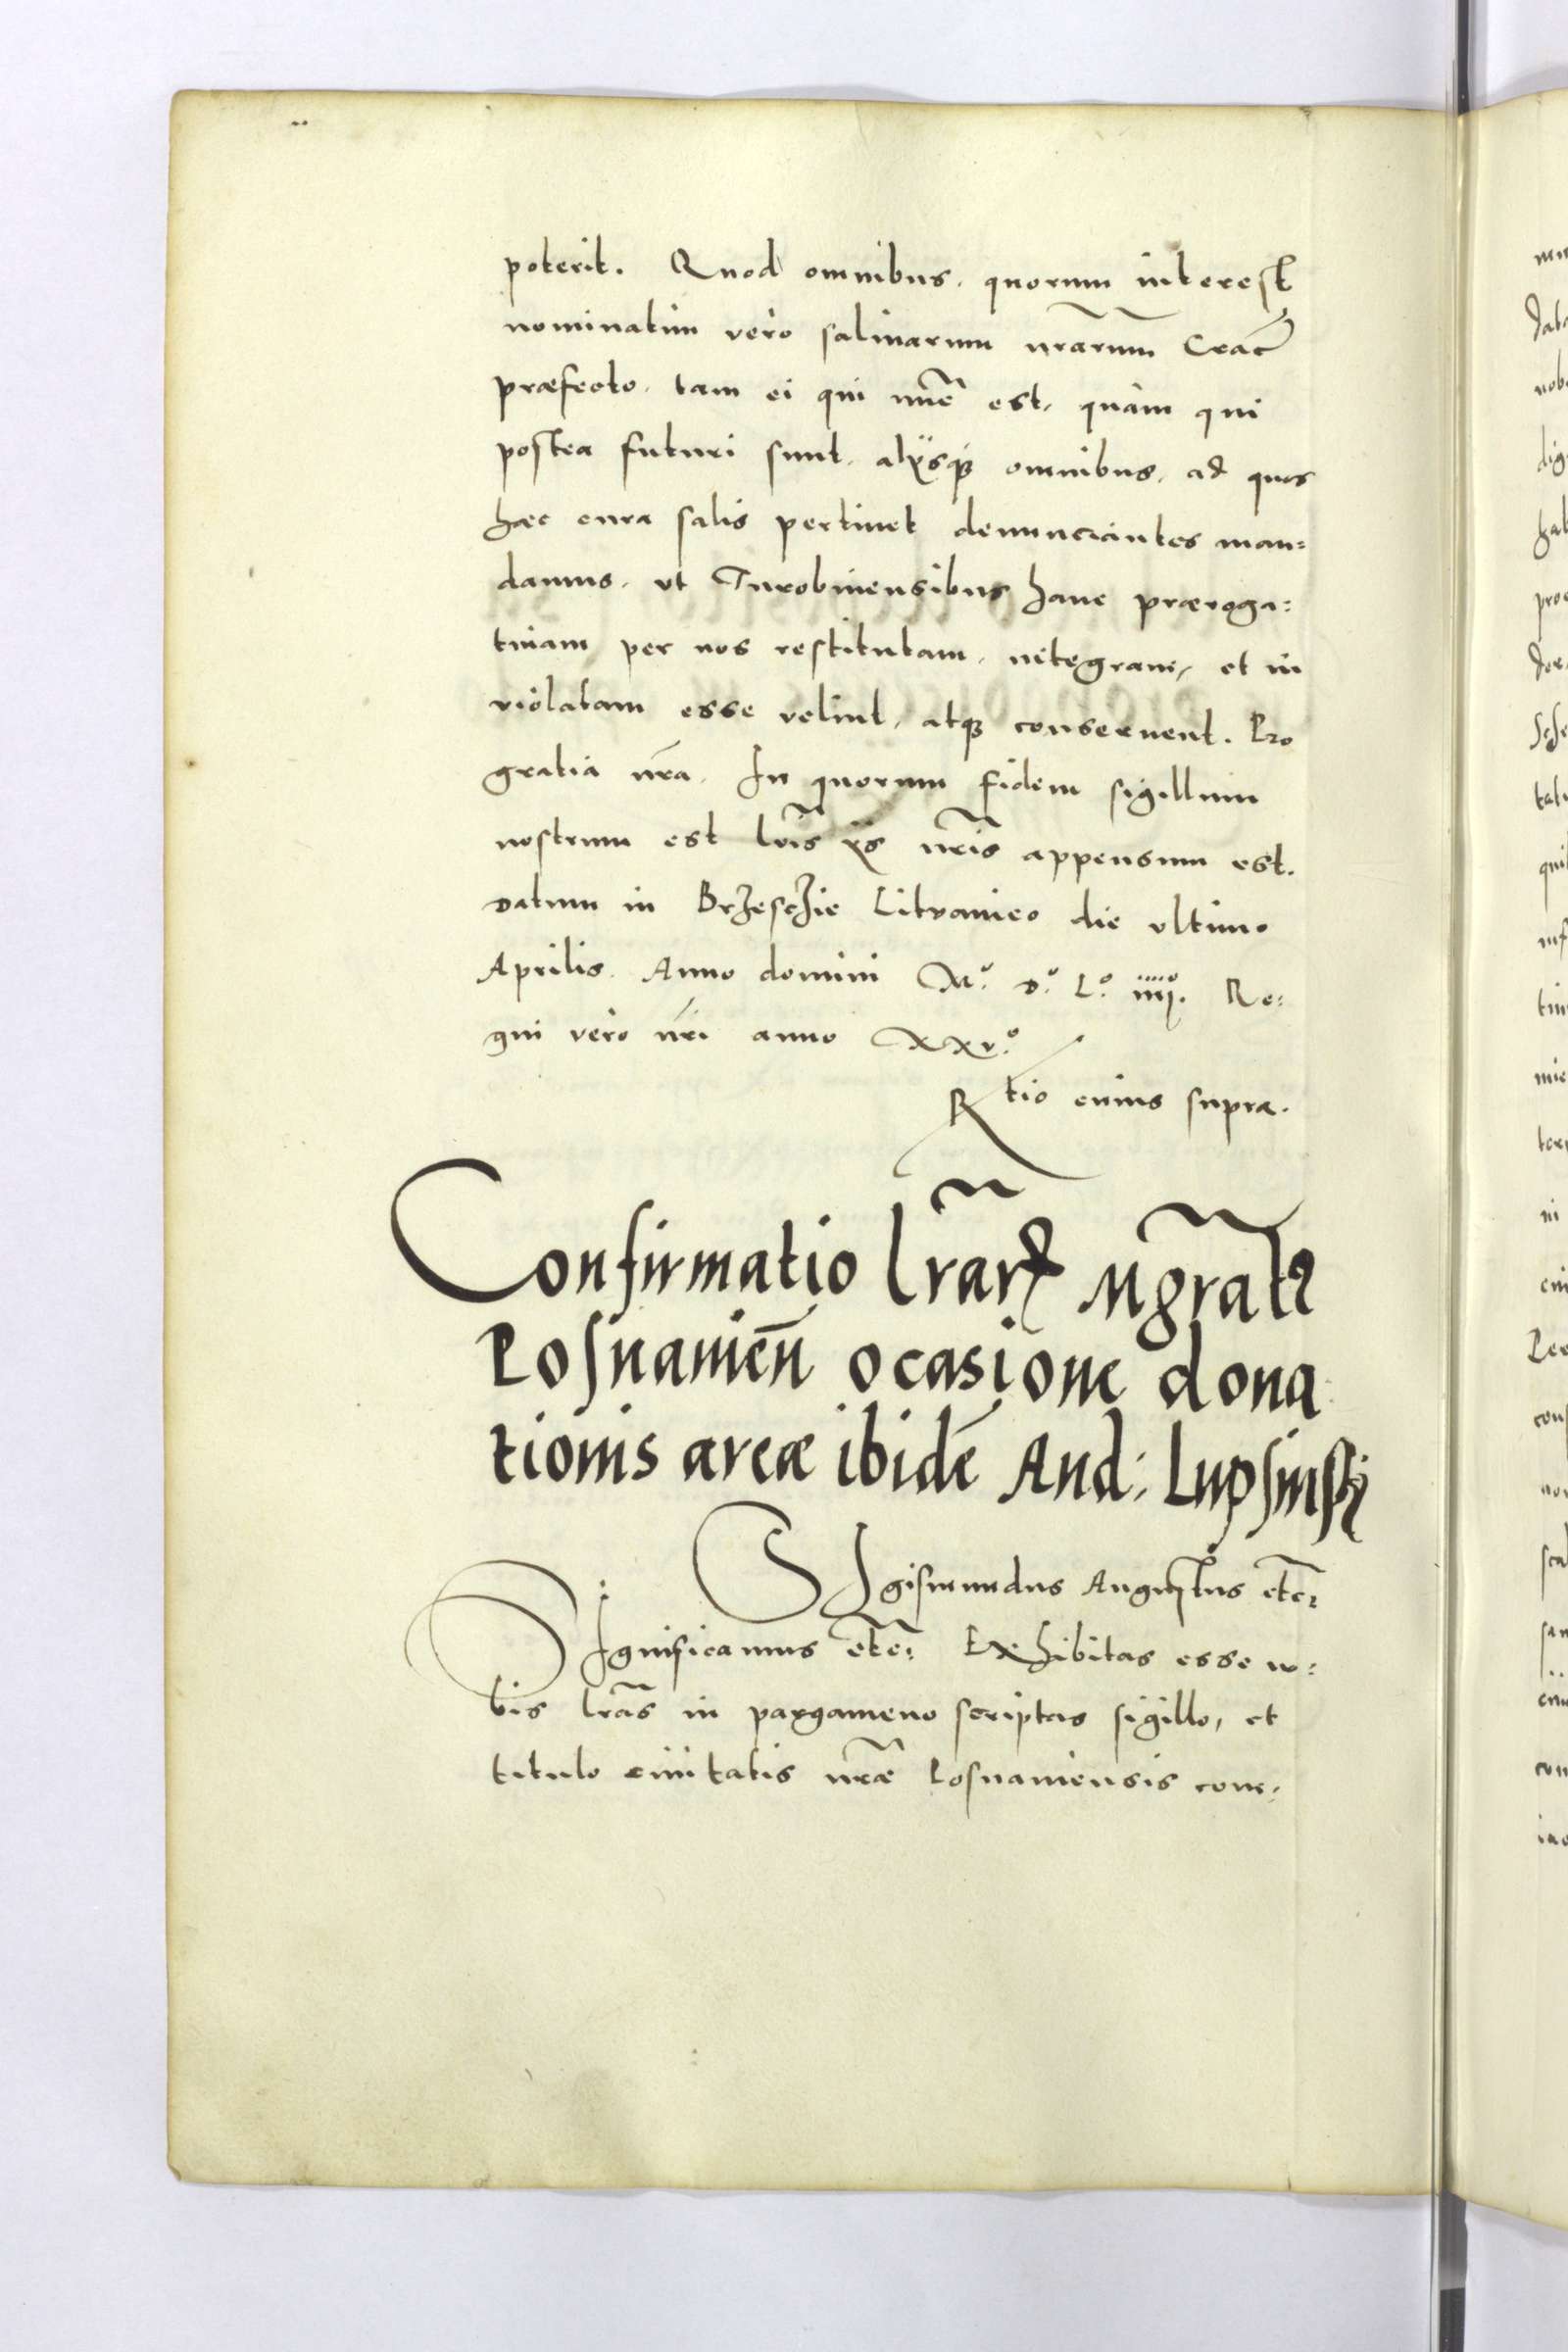 poterit. Quod omnibus, quorum interest
nominatim vero salinarum nr̃arum Crac̃
præfecto, tam ei qui nunc̃ est, quam qui
postea futuri sunt, alÿsq; omnibus, ad quos
hæc cura salis pertinet denunciantes man=
damus, ut Turobinensibus hanc præroga=
tiuam per nos restitutam, integram, et in
violatam esse velint, atq; conseruent. Pro
gratia nr̃a. In quorum fidem sigillum
nostrum est lr̃is ÿs nr̃is appensum est.
Datum in Brzesczie Litvanico die vltimo
Aprilis. Anno domini Mº. Dº. Lº. iiijº. Re=
gni vero nr̃i anno XXVº.
Rtio cuius supra.
Confirmatio lr̃arꝝ Mgr̃atꝯ
Posnanien̄ ocasione dona
tionis areæ ibidẽ And: Lupsinskÿ
SIgismundus Augustus etc̃:
SIgnificamus etc̃: Exhibitas esse no=
bis lr̃as in pargameno scriptas sigillo, et
titulo ciuitatis nr̃æ Posnaniensis com=